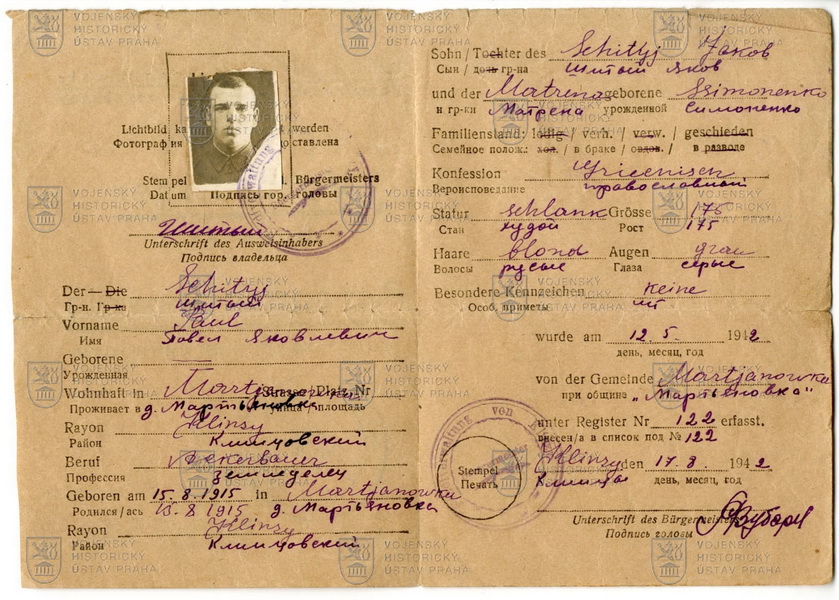 Lichtbild
Фотография
Stempel
Datum
Bürgermeisters
Подпись гор. головы
Шитый
Unterschrift des Ausweisinhabers
Подпись владельца
Der — Die Schityj
Гр-н. Гр-ка Шитый
Vorname Paul
Имя Павел Яковлевич
Geborene —
Урожденная
Wohnhaft in Strasse-Platz Nr
Проживает в д. Мартьяновка площадь
Rayon Klinzy
Район Климовский
Beruf Ackerbauer
Профессия земледелец
Geboren am 15. 8. 1915 in Martjanowka
Родился/ась 8 1915 д. Мартьяновка
Rayon Klinzy
Район Климовский
Sohn / Tochter des Schityj Jakob
Сын / дочь гр-на Шитый Яков
und der Matrena geborene Ssimonenko
и гр-ки Матрена урожденной Симоненко
Familienstand: ledig / verh. / verw. / geschieden
Семейное полож: хол. / в браке / вдов. / в разводе
Konfession Griechisch
Вероисповедание православный
Statur schlank Grösse 175
Стан худой Рост 175
Haare blond Augen grau
Волосы русые Глаза серые
Besondere Kennzeichen keine
Особ. приметы нет
wurde am 12. 5. 1942
день, месяц, год
von der Gemeinde Martjanowka
при общине „Мартьяновка"
unter Register Nr 122 erfasst.
внесен/а в список под № 122
Klinzy den 17. 8. 1942
день, месяц, год
Stempel
Печать
Unterschrift des Bürgermeisters
Подпись головы
VOJENSKÝ
HISTORICKÝ
ÚSTAV PRAHA